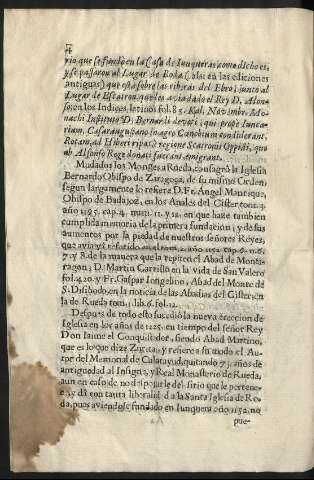 4
rio que se fundò en la Casa de Iunqueras, como dicho es,
y se passaron al Lugar de Roda (assi en las ediciones
antiguas) que està sobre las riberas del Ebro, junto al
Lugar de Escatron, que les avia dado el Rey D. Alon-
so, en los Indices latinos fol. 85. Kal. Novembr. Mo-
nachi Instituti D. Bernardi devoti, qui prope Iunce-
riam, Casaraugustano in agro Cœnobium condiderant,
Rotam, ad Hiberi ripas è regione Scatronis Oppidi, quo
ab Alfonso Rege donati fuerant emigrant.
Mudados los Monges a Rueda, consagrò la Iglesia
Bernardo Obispo de Zaragoça, de su misma Orden,
segun largamente lo refiere D. Fr. Angel Manrique,
Obispo de Badajoz, en los Anales del Cister tom. 3.
año 1195. cap. 4. num. 11. y 12. en que haze tambien
cumplida memoria de la primera fundacion, y de sus
aumentos por la piedad de nuestros señores Reyes,
que avia yà referido en el tom. 2. año 1152. cap. 6. n. 6.
7. y 8. de la manera que la repiten el Abad de Monta-
ragon, D. Martin Carrillo en la vida de San Valero
fol. 420. y Fr. Gaspar Iongelino, Abad del Monte de
S. Disibodo, en la noticia de las Abadias del Cister, en
la de Rueda tom. lib. 6. fol. 12.
Despues de todo esto sucediò la nueva ereccion de
Iglesia en los años de 1225. en tiempo del señor Rey
Don Iaime el Conquistador, siendo Abad Martino,
que es lo que dize Zurita, y refiere a su modo el Au-
tor del Memorial de Calatayud, quitando 73. años de
antiguedad al Insigne, y Real Monasterio de Rueda,
aun en caso de no disputarle del sitio que le pertene-
ce, y dà con tanta liberalidad a la Santa Iglesia de Ro-
da, pues aviendose fundado en Iunquera año 1152. no
pue-